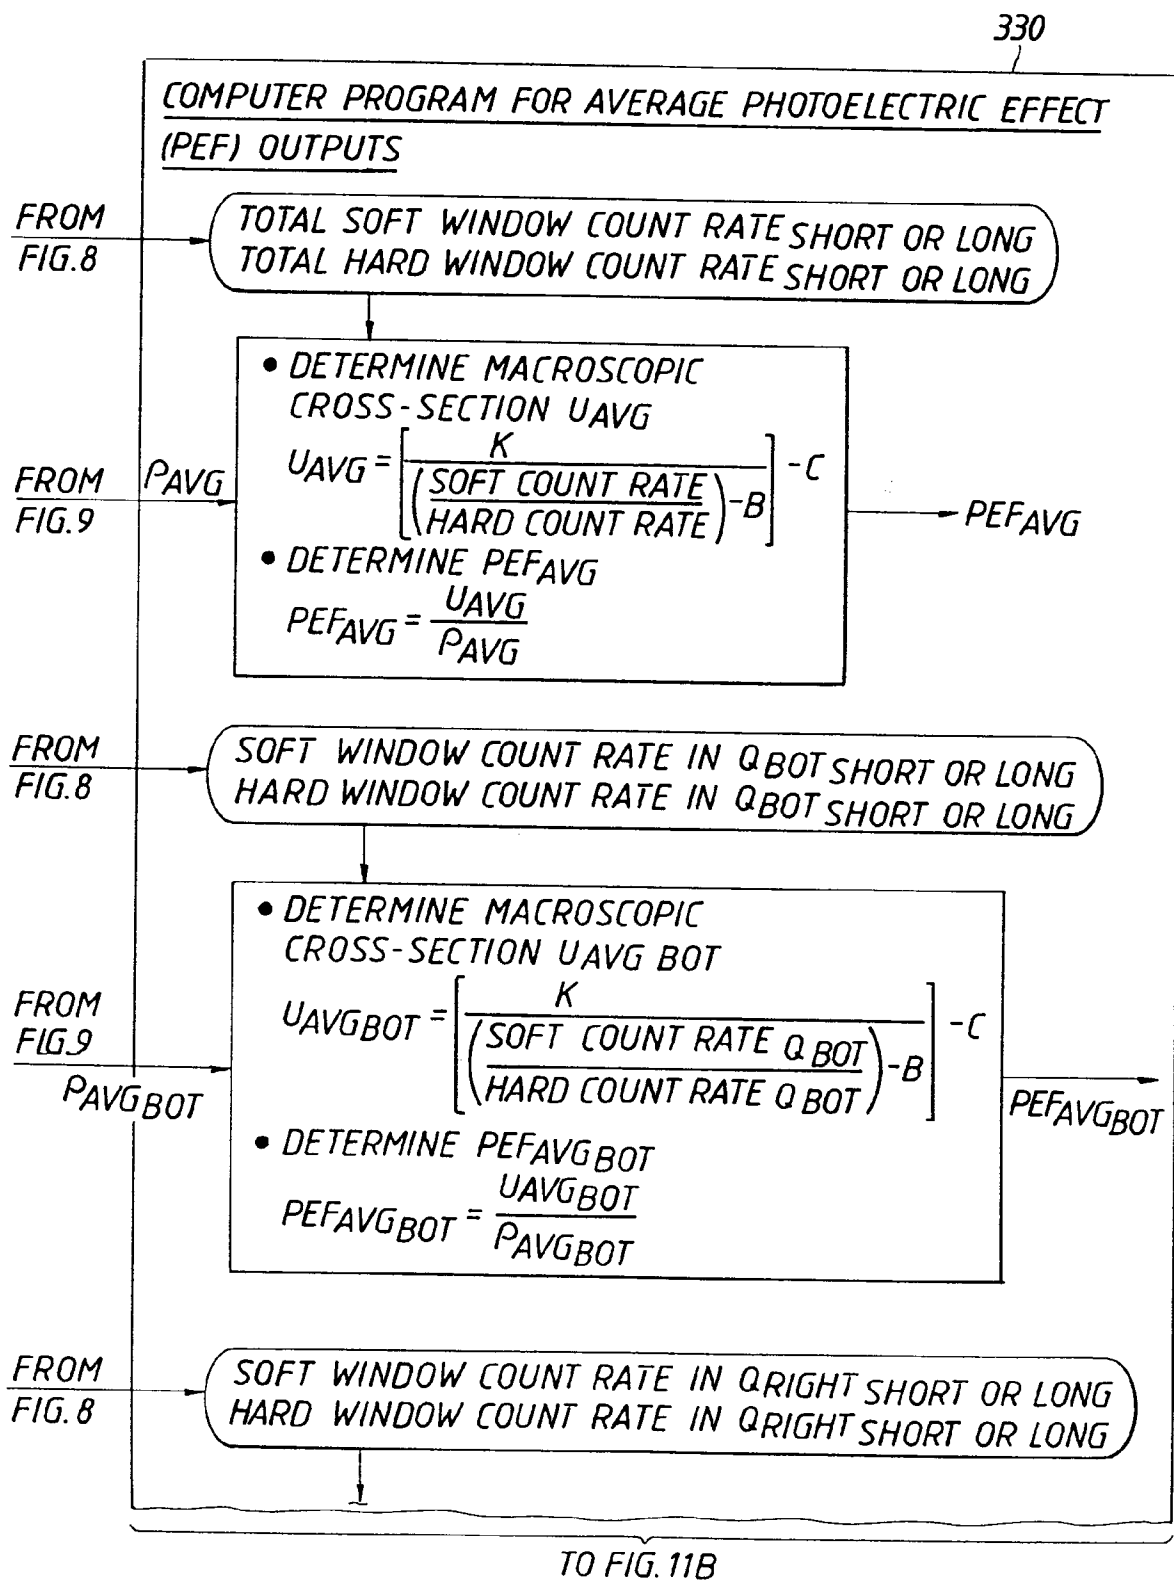 330
COMPUTER PROGRAM FOR AVERAGE PHOTOELECTRIC EFFECT
(PEF) OUTPUTS
FROM
FIG.8
TOTAL SOFT WINDOW COUNT RATE SHORT OR LONG
TOTAL HARD WINDOW COUNT RATE SHORT OR LONG
• DETERMINE MACROSCOPIC
CROSS-SECTION UAVG
UAVG = [K / ((SOFT COUNT RATE / HARD COUNT RATE) -B)] -C
FROM
FIG.9
ρAVG
• DETERMINE PEFAVG
PEFAVG = UAVG / ρAVG
PEFAVG
FROM
FIG.8
SOFT WINDOW COUNT RATE IN QBOT SHORT OR LONG
HARD WINDOW COUNT RATE IN QBOT SHORT OR LONG
• DETERMINE MACROSCOPIC
CROSS-SECTION UAVG BOT
UAVGBOT = [K / ((SOFT COUNT RATE QBOT / HARD COUNT RATE QBOT) -B)] -C
FROM
FIG.9
ρAVGBOT
• DETERMINE PEFAVGBOT
PEFAVGBOT = UAVGBOT / ρAVGBOT
PEFAVGBOT
FROM
FIG.8
SOFT WINDOW COUNT RATE IN QRIGHT SHORT OR LONG
HARD WINDOW COUNT RATE IN QRIGHT SHORT OR LONG
TO FIG.11B